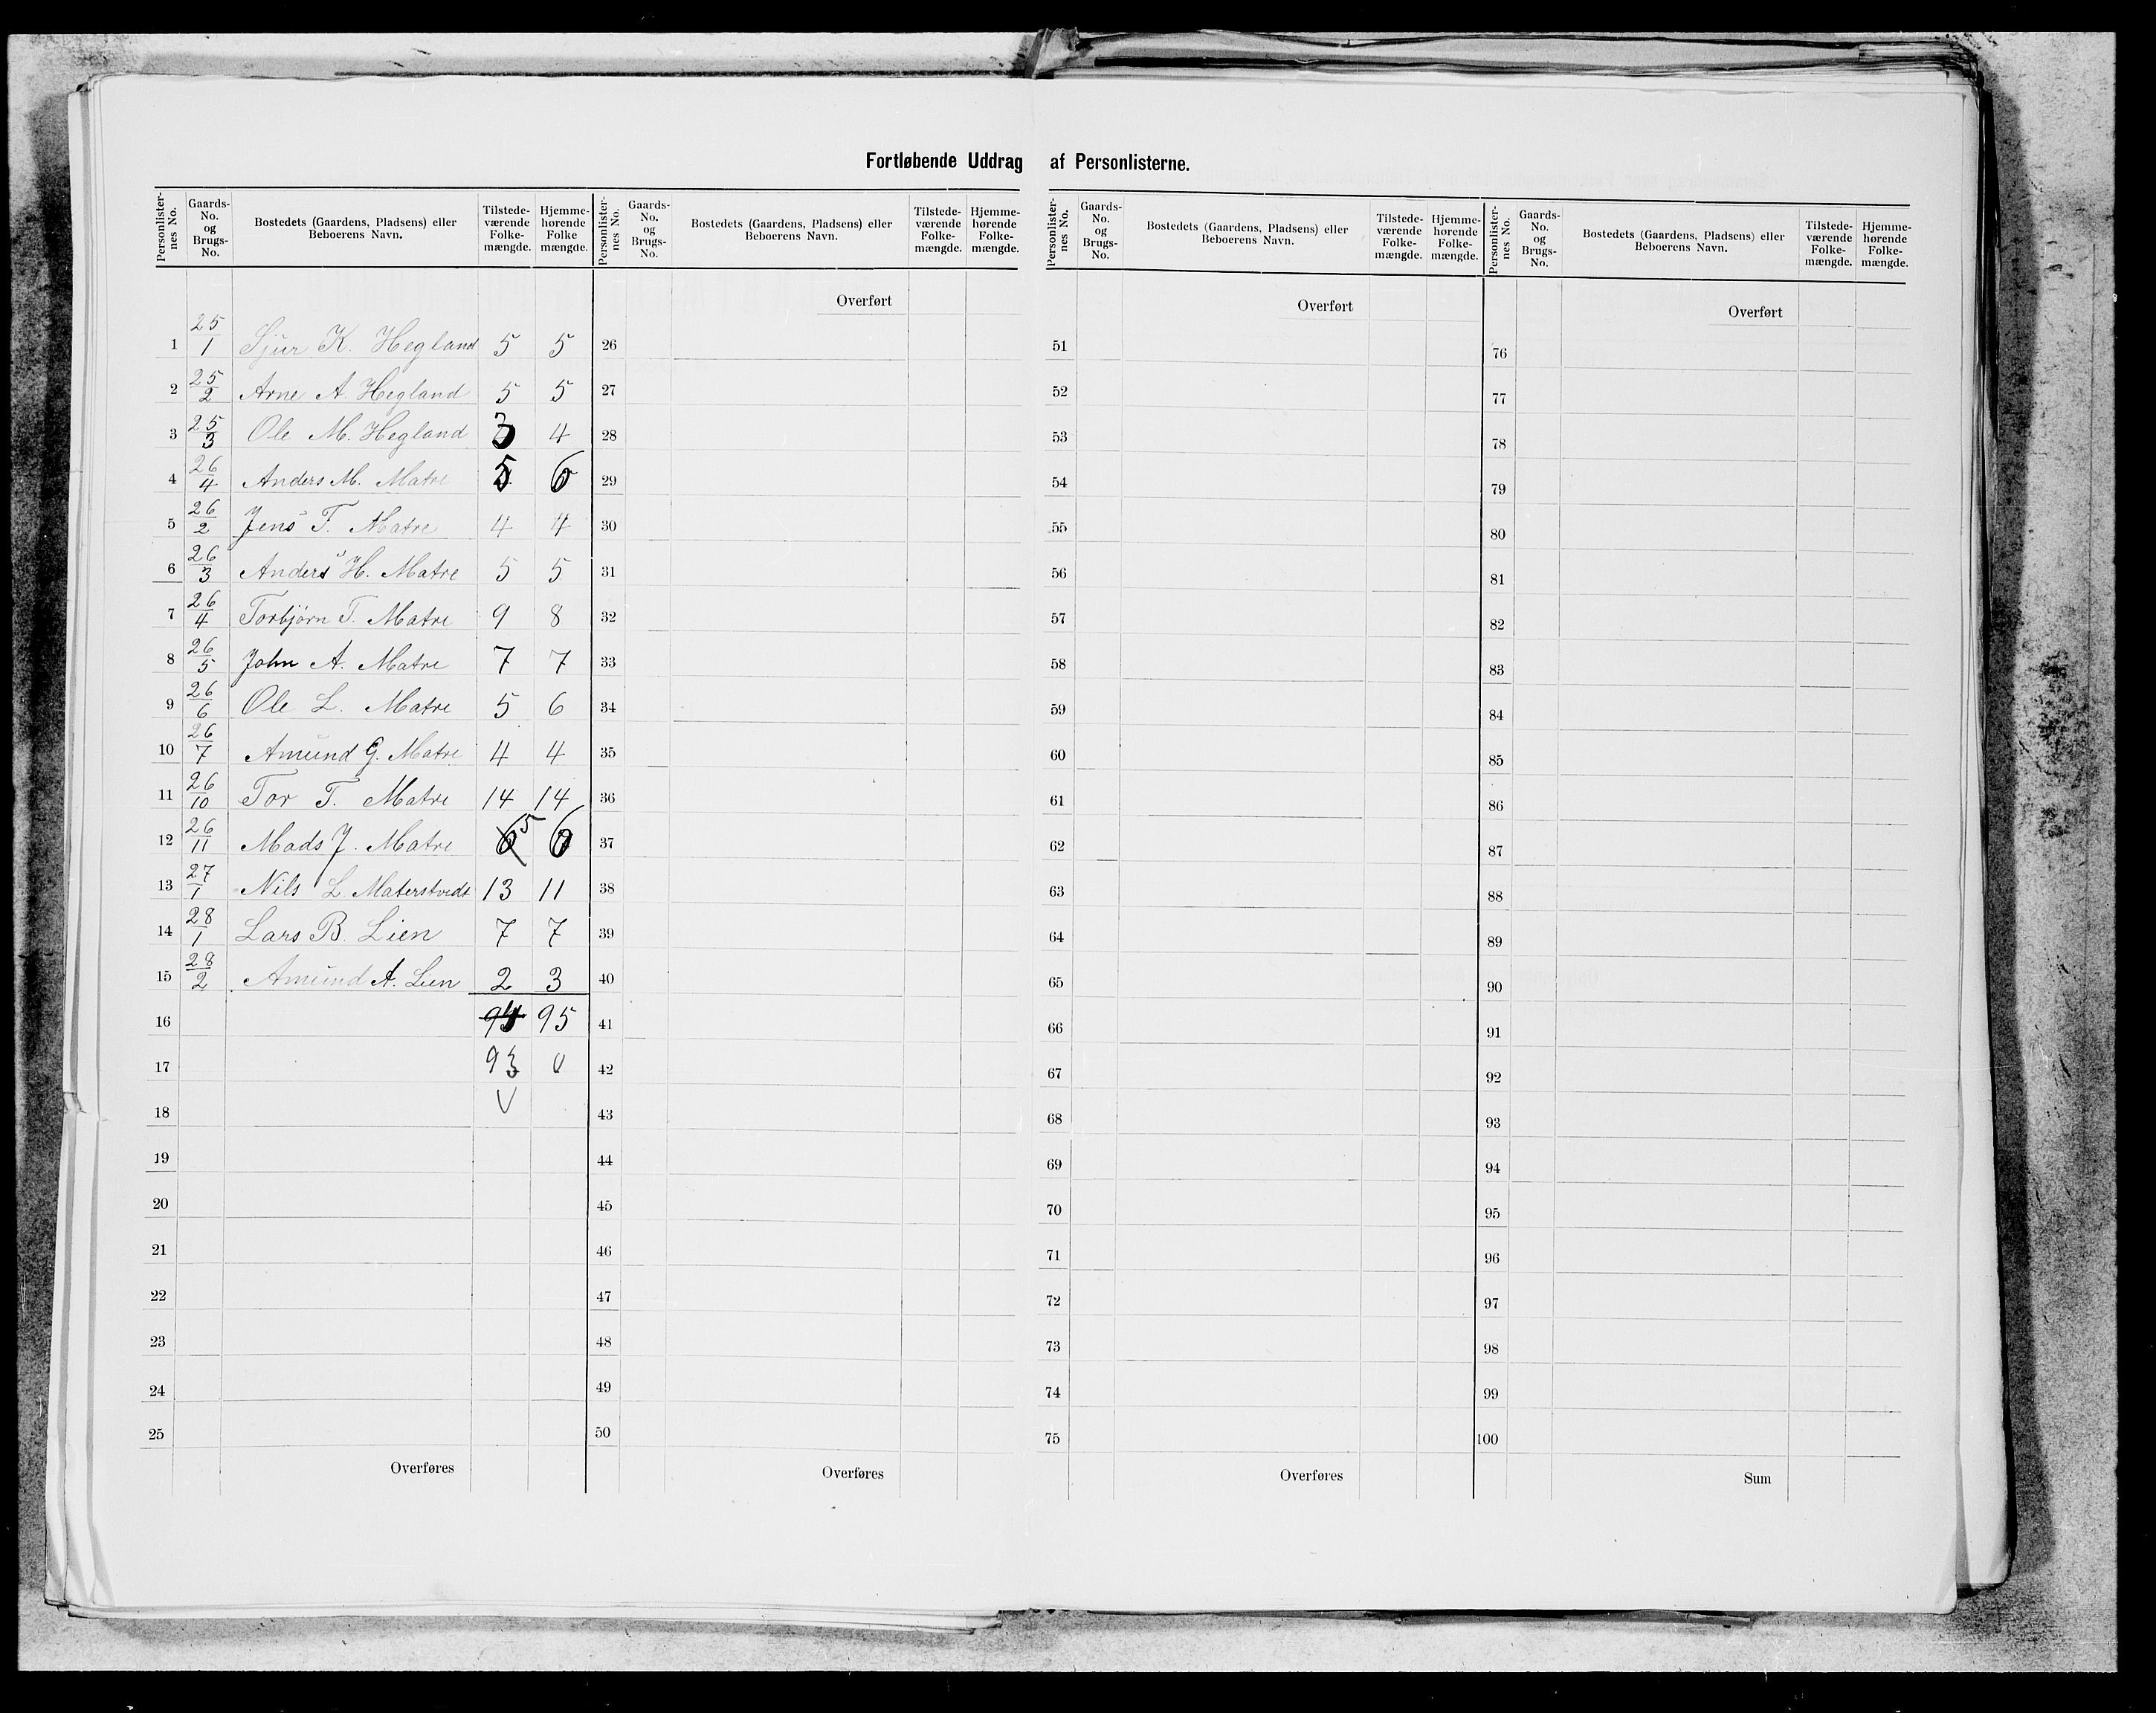 Fortløbende Uddrag af Personlisterne.
Personlisternes No. | Gaards-No. og Brugs-No. | Bostedets (Gaardens, Pladsens) eller Beboerens Navn. | Tilstedeværende Folkemængde. | Hjemmehørende Folkemængde.
1 25/1 Sjur K. Hegland 5 5
2 25/2 Arne A. Hegland 5 5
3 25/3 Ole M. Hegland 3 4
4 26/4 Anders M. Matre 5 6
5 26/2 Jens T. Matre 4 4
6 26/3 Anders H. Matre 5 5
7 26/4 Torbjørn T. Matre 9 8
8 26/5 John A. Matre 7 7
9 26/6 Ole L. Matre 5 6
10 26/7 Amund G. Matre 4 4
11 26/10 Tor T. Matre 14 14
12 26/11 Mads J. Matre 6 5 6
13 27/1 Nils L. Materstvedt 13 11
14 28/1 Lars B. Lien 7 7
15 28/2 Amund A. Lien 2 3
16 94 95
17 93
18
19
20
21
22
23
24
25
Overføres
Personlisternes No. | Gaards-No. og Brugs-No. | Bostedets (Gaardens, Pladsens) eller Beboerens Navn. | Tilstedeværende Folkemængde. | Hjemmehørende Folkemængde.
Overført
26
27
28
29
30
31
32
33
34
35
36
37
38
39
40
41
42
43
44
45
46
47
48
49
50
Overføres
Personlisternes No. | Gaards-No. og Brugs-No. | Bostedets (Gaardens, Pladsens) eller Beboerens Navn. | Tilstedeværende Folkemængde. | Hjemmehørende Folkemængde.
Overført
51
52
53
54
55
56
57
58
59
60
61
62
63
64
65
66
67
68
69
70
71
72
73
74
75
Overføres
Personlisternes No. | Gaards-No. og Brugs-No. | Bostedets (Gaardens, Pladsens) eller Beboerens Navn. | Tilstedeværende Folkemængde. | Hjemmehørende Folkemængde.
Overført
76
77
78
79
80
81
82
83
84
85
86
87
88
89
90
91
92
93
94
95
96
97
98
99
100
Sum